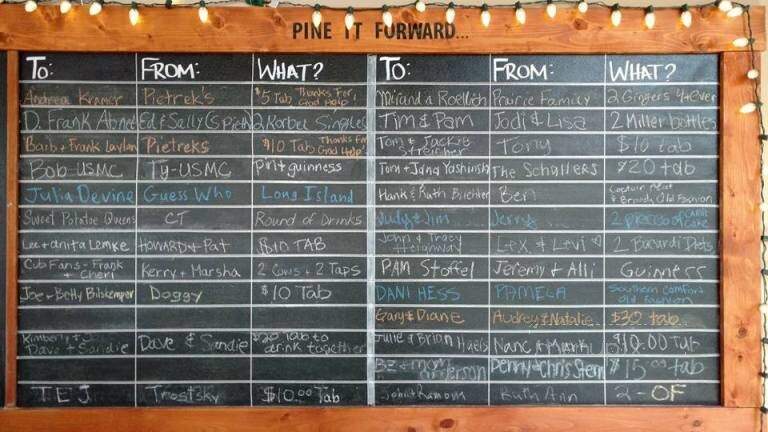 PINE IT FORWARD...
TO: FROM: WHAT?
Andreea Kramer Pietrek's $5 Tab Thanks For God Help!
D. Frank Abnet Ed & Sally Spieth 2 Korbel Singles
Barb + Frank Pietreks $10 Tab Thanks For God Help!
Bob-USMC Ty-USMC Pint guinness
Julia Devine Guess Who Long Island
Sweet Potatoe Queens CT Round of Drinks
Lee + anita Lemke HOWARD + Pat $10 TAB
Cub Fans - Frank + Cheri Kerry + Marsha 2 + 2 Taps
Joe + Betty Doggy $10 Tab
Kimberly + Dave + Sandie Dave & Sandie $20 tab to drink together
TEJ Trostsky $10.00 Tab
TO: FROM: WHAT?
Miranda Prairie Family 2 Gingers 4+ever
Tim & Pam Jodi & Lisa 2 Miller bottles
Tom & Jackie Streicher Tony $10 tab
Tom + Jana The Schallers $20 tab
Hank & Ruth Ben Captain & Brandy Old Fashion
Judy & Jim Jerry 2 pieces of Carrot Cake
John & Tracy Lex & Levi 2 Bacardi Diets
PAM Stoffel Jeremy & Alli Guinness
DANI HESS PAMELA Southern Comfort old fashion
Gary & Diane Audrey & Natalie $30 tab
Julie & Brian Nanc & Mark $10.00 Tab
BZ & mom anderson Penny & Chris Stern $15.00 tab
John + Ramona Ruth Ann 2-OF